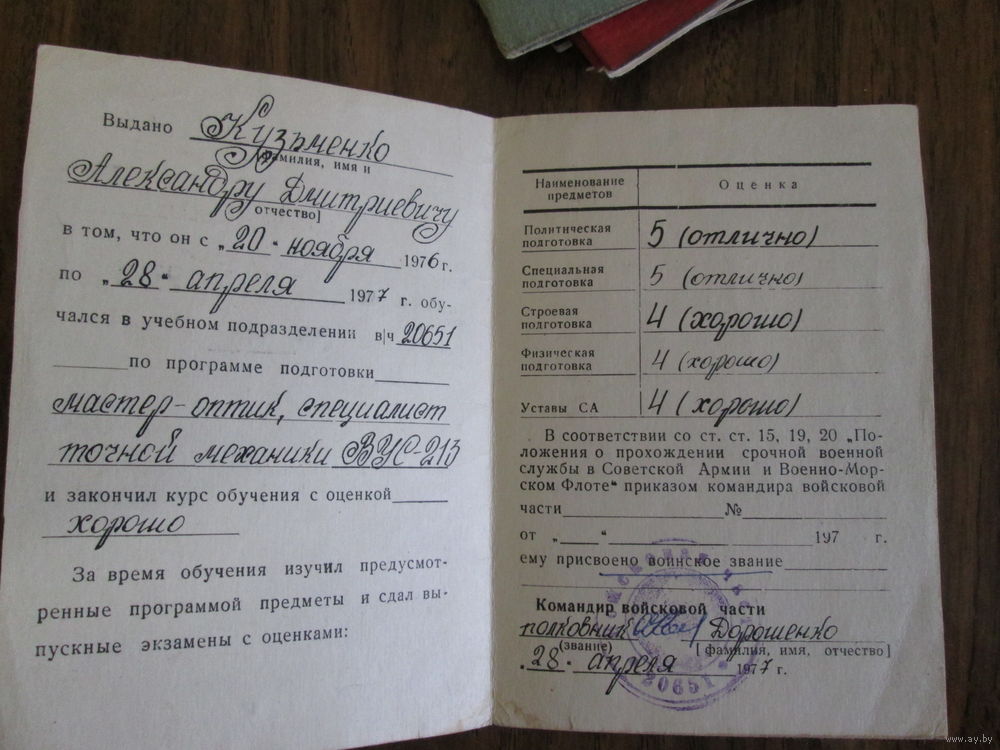 Выдано Кузьменко
[фамилия, имя и
Александру Дмитриевичу
отчество]
в том, что он с „20" ноября 1976 г.
по „28" апреля 1977 г. обу-
чался в учебном подразделении в|ч 20651
по программе подготовки
мастер-оптик, специалист
точной механики ВУС-213
и закончил курс обучения с оценкой
хорошо
За время обучения изучил предусмот-
ренные программой предметы и сдал вы-
пускные экзамены с оценками:
Наименование предметов Оценка
Политическая подготовка 5 (отлично)
Специальная подготовка 5 (отлично)
Строевая подготовка 4 (хорошо)
Физическая подготовка 4 (хорошо)
Уставы СА 4 (хорошо)
В соответствии со ст. ст. 15, 19, 20 „По-
ложения о прохождении срочной военной
службы в Советской Армии и Военно-Мор-
ском Флоте" приказом командира войсковой
части №
от „ " 197 г.
ему присвоено воинское звание
Командир войсковой части
полковник Дорошенко
(звание) [фамилия, имя, отчество]
„28" апреля 1977 г.
20651
www.ay.by